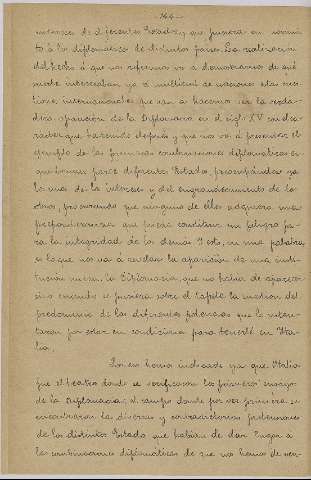 144
intereses de diferentes Estados, y que pusiera en movimien-
to á los diplomáticos de distintos países. La realización
del hecho á que nos referimos va á demostrarnos de qué
suerte interesaban ya á multitud de naciones estas cues-
tiones internacionales que van á hacernos ver la verda-
dera aparición de la Diplomacia en el siglo XV con el ca-
rácter que ha tenido después y que nos va á presentar el
ejemplo de las primeras combinaciones diplomáticas en
que toman parte diferentes Estados, preocupándose ya
la una de los intereses y del engrandecimiento de la
otra, procurando que ninguna de ellas adquiera una
preponderancia que pueda constituir un peligro pa-
ra la integridad de las demás. Y esto, en una palabra,
es lo que nos va á revelar la aparición de una insti-
tución nueva, la Diplomacia, que no había de aparecer
sino cuando se pusiera sobre el tapete la cuestión del
predominio de las diferentes potencias que lo inten-
taran por estar en condiciones para tenerle en Ita-
lia.
Pues hemos indicado ya que Italia
fue el teatro donde se verificaron los primeros ensayos
de la Diplomacia; el campo donde por vez primera se
encontraron las diversas y contradictorias pretensiones
de los distintos Estados que habían de dar lugar á
las combinaciones diplomáticas de que nos hemos de ver